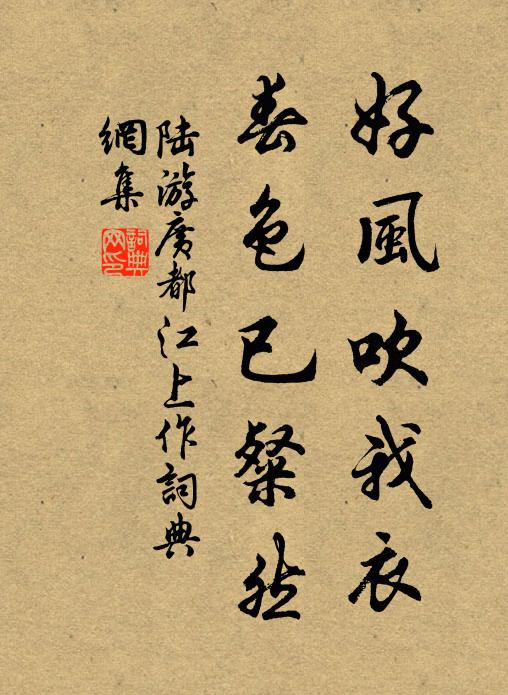 好風吹我衣
春色已粲然
陸游廣都江上作詞典
網集
詞典網印